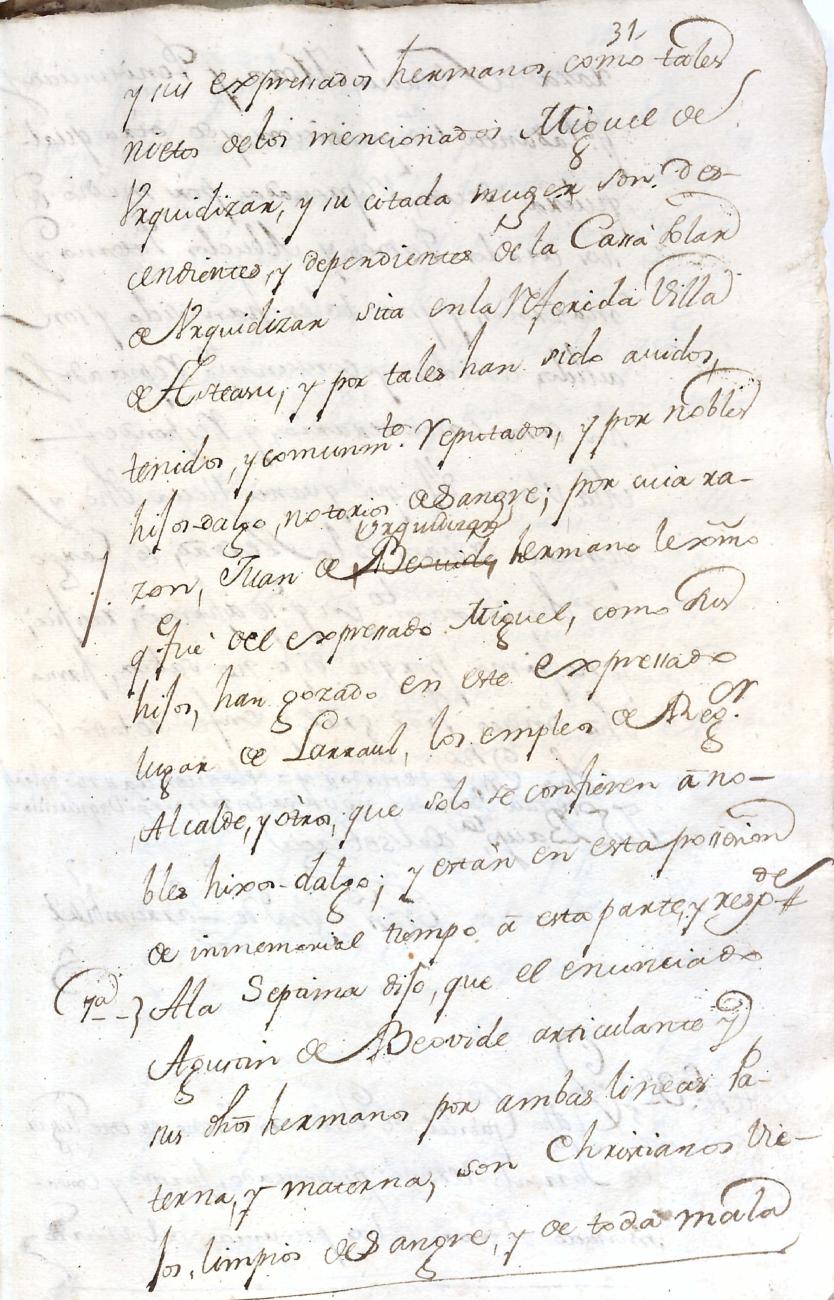 31
y sus expressados hermanos, como tales
nietos delos mencionados Miguel de
Vrquidizar, y su citada muger son des-
cendientes, y dependientes de la Cassa solar
de Vrquidizar sita en la Referida Villa
de Asteasu, y por tales han sido auidos,
tenidos, y comunmte. Reputados, y por nobles
hijos-dalgo, notorios de Sangre; por cuia ra-
Urquidizar
zon, Juan de Beovide, hermano lexmo
qe fue del expressado Miguel, como sus
hijos, han gozado en este expressado
lugar de Larraul, los empleos de Regor.
Alcalde, y otros, que solo se confieren a no-
bles hixos-dalgo; y estan en esta possession
de inmemorial tiempo a esta parte, y respde
7a Ala Septima dijo, que el enunciado
Agustin de Beovide articulante y
sus dhos hermanos por ambas lineas Pa-
terna, y materna, son Christianos Vie-
jos, limpios de Sangre, y de toda mala